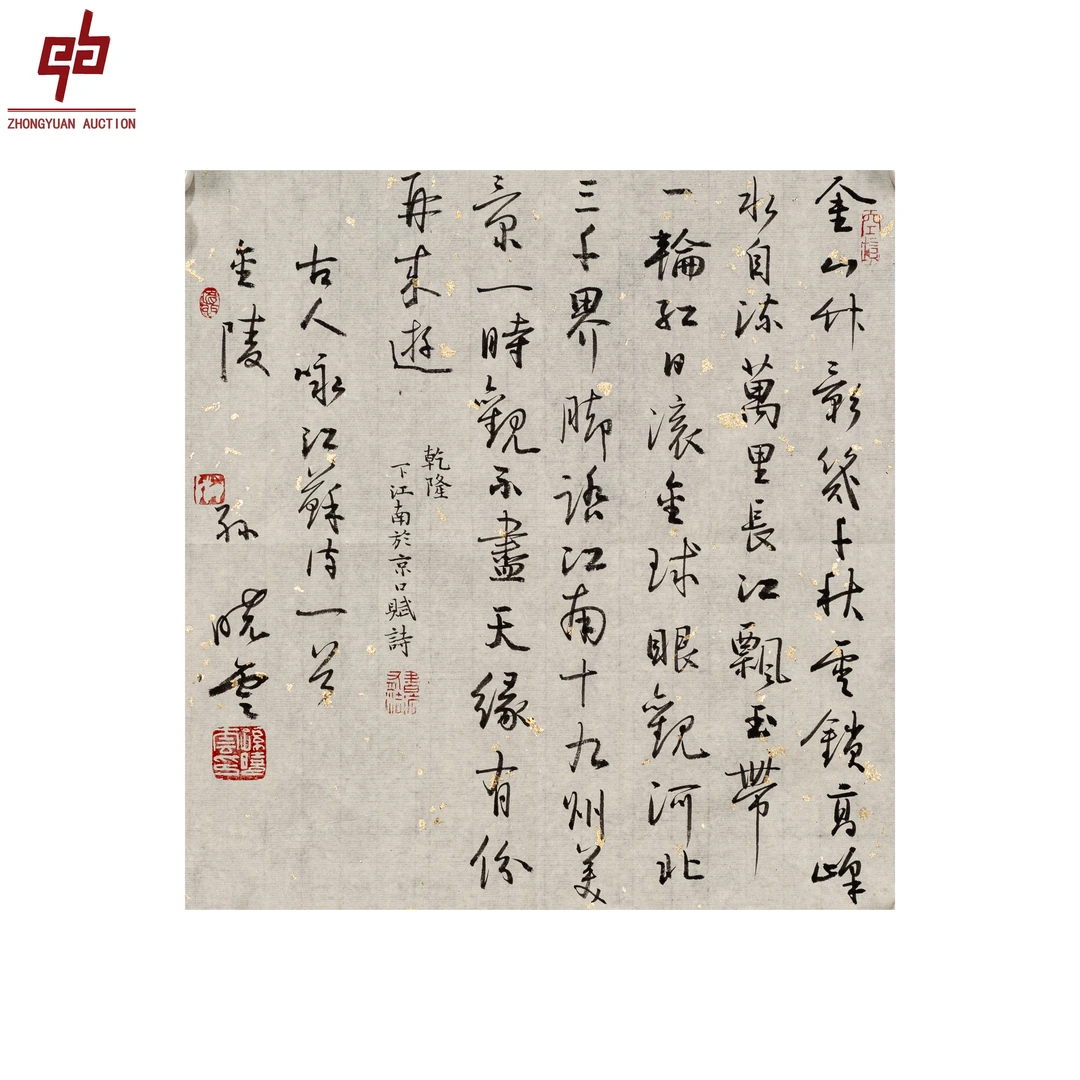 ZHONGYUAN AUCTION
金山竹影幾千秋雲鎖高峰
水自流萬里長江飄玉帶
一輪紅日滾金球眼觀河北
三千界脚踏江南十九州美
景一時觀不盡天緣有份
再来遊
乾隆
下江南於京口賦詩
古人咏江蘇诗一首
金陵 孫曉雲